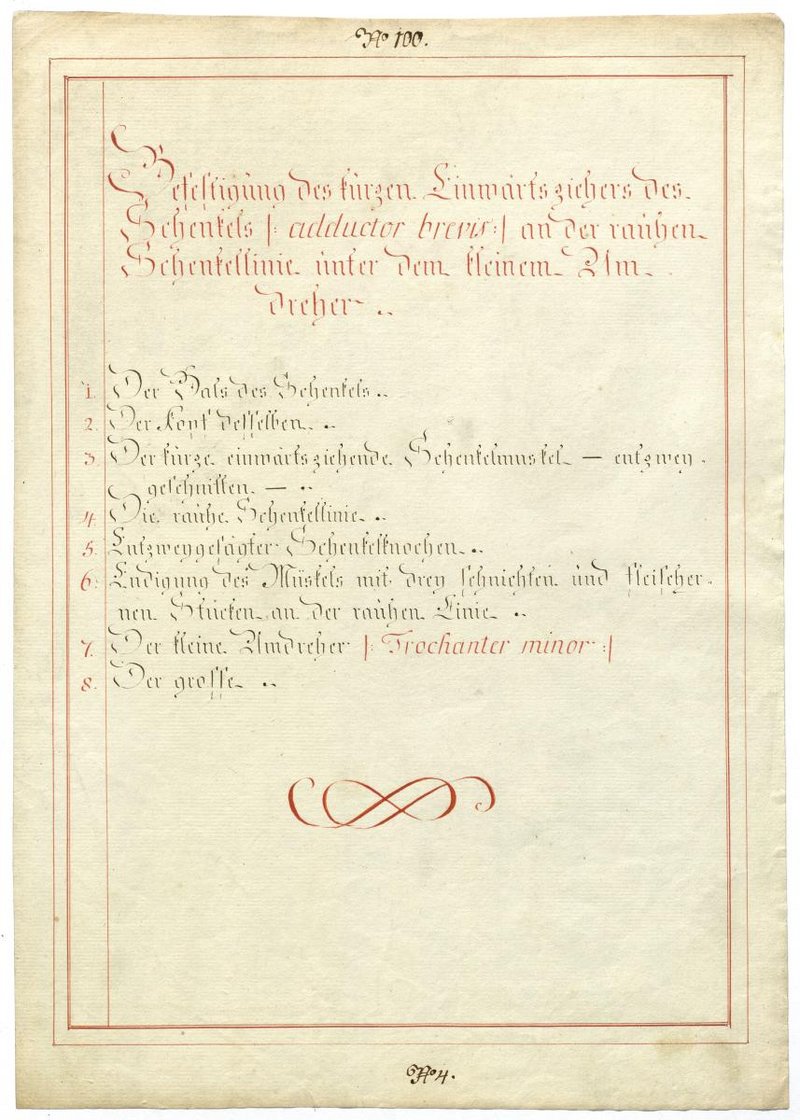 No 100.
Befestigung des kurzen Einwärtsziehers des
Schenkels |: adductor brevis :| an der rauhen
Schenkellinie unter dem kleinem Um-
dreher ..
1. Der Hals des Schenkels ..
2. Der Kopf desselben ..
3. Der kurze einwärtsziehende Schenkelmuskel — entzwey
geschnitten — ..
4. Die rauhe Schenkellinie ..
5. Entzweygesägter Schenkelknochen ..
6. Endigung des Muskels mit drey schnichten und fleischer-
nen Stücken an der rauhen Linie ..
7. Der kleine Umdreher |: Trochanter minor :|
8. Der grosse ..
No 4.